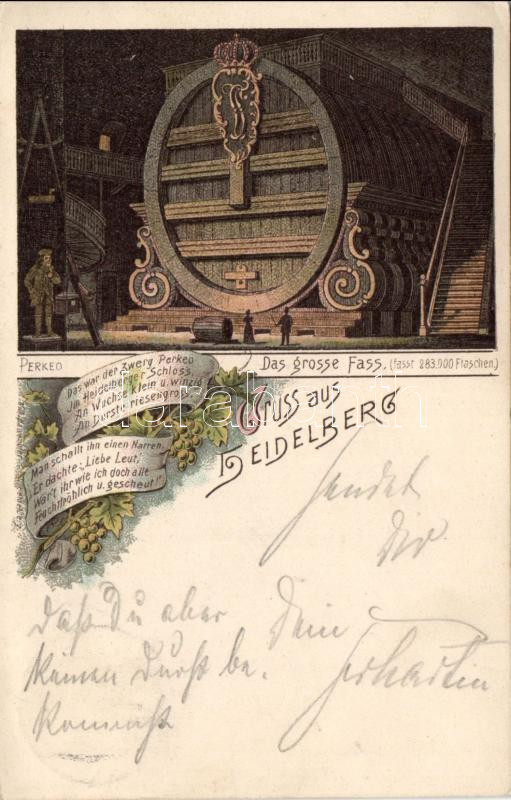 PERKEO
Das grosse Fass, (fasst 283.000 Flaschen.)
Das war der Zwerg Perkeo
Im Heidelberger Schloss,
An Wuchse klein u. winzig
An Durste riesengross.
Man schalt ihn einen Narren,
Er dachte: „Liebe Leut,
Wär't ihr wie ich doch alle
Feuchtfröhlich u. gescheut!"
Gruss aus
HEIDELBERG
Sendet
Dir
Daß Du aber Dein
keinen Durst be-
kommst
darabanth